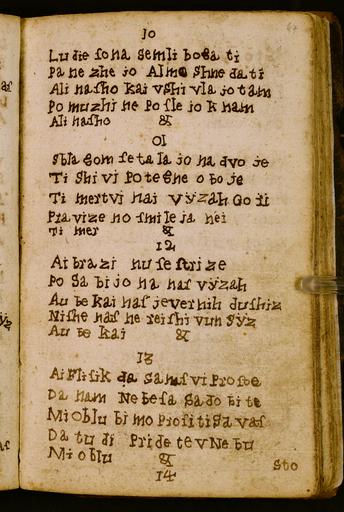 10
Ludie so na semli boga ti
Pa ne zhe jo Almo shne dati
Ali nasho kai vshi vla jo tam
Po muzhi ne Po sle jo k nam
Ali nasho &
01
Sbla Gom se ta la jo na dvo je
Ti shi vi Po te Ghe o bo je
Ti mertvi nai vÿzah Go ri
Pra vize no smi le ja nei
Ti mer &
12
Ai bra zi nu se strize
Po Sa bi jo na nas vÿzah
Au be kai nas jevernih dushiz
Nishe nas ne reishi vun Sÿz
Au be kai &
13
Ai Flisik da Sa nas vi Prosbe
Da nam Nebesa Sa do bite
Mi oblu bi mo Prositi Sa vas
Da tu di Pride te v Ne bu
Mi o blu &
14
Sto